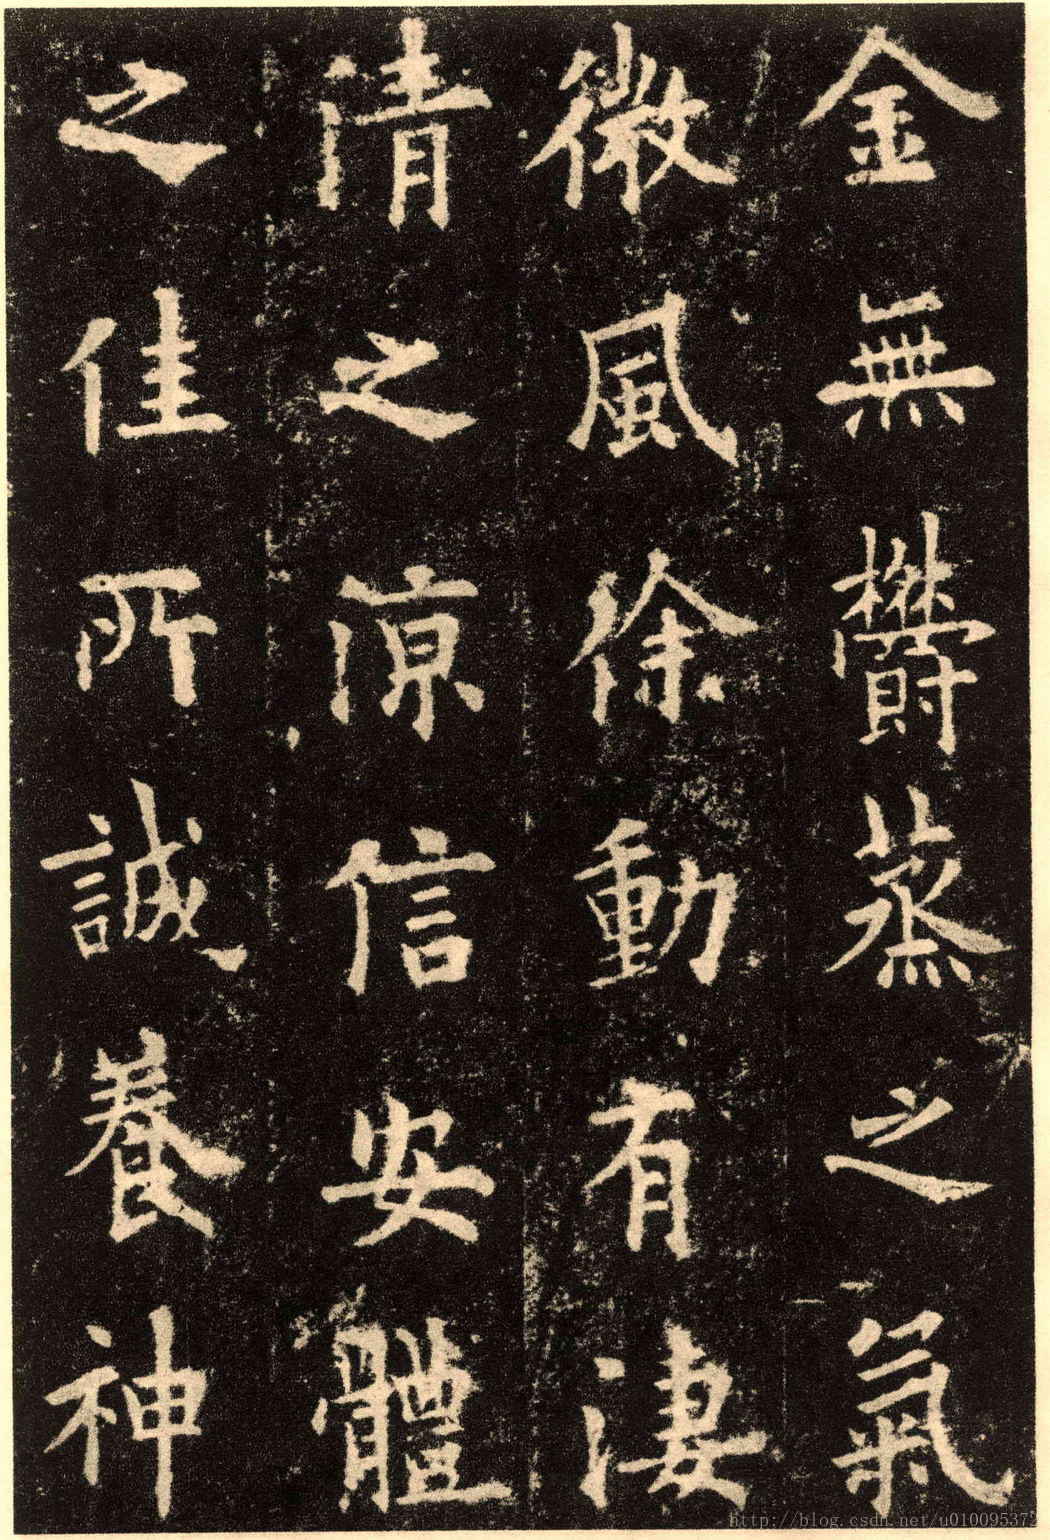 金無欝蒸之氣
微風徐動有淒
清之凉信安體
之佳所誠養神
http://blog.csdn.net/u010095372